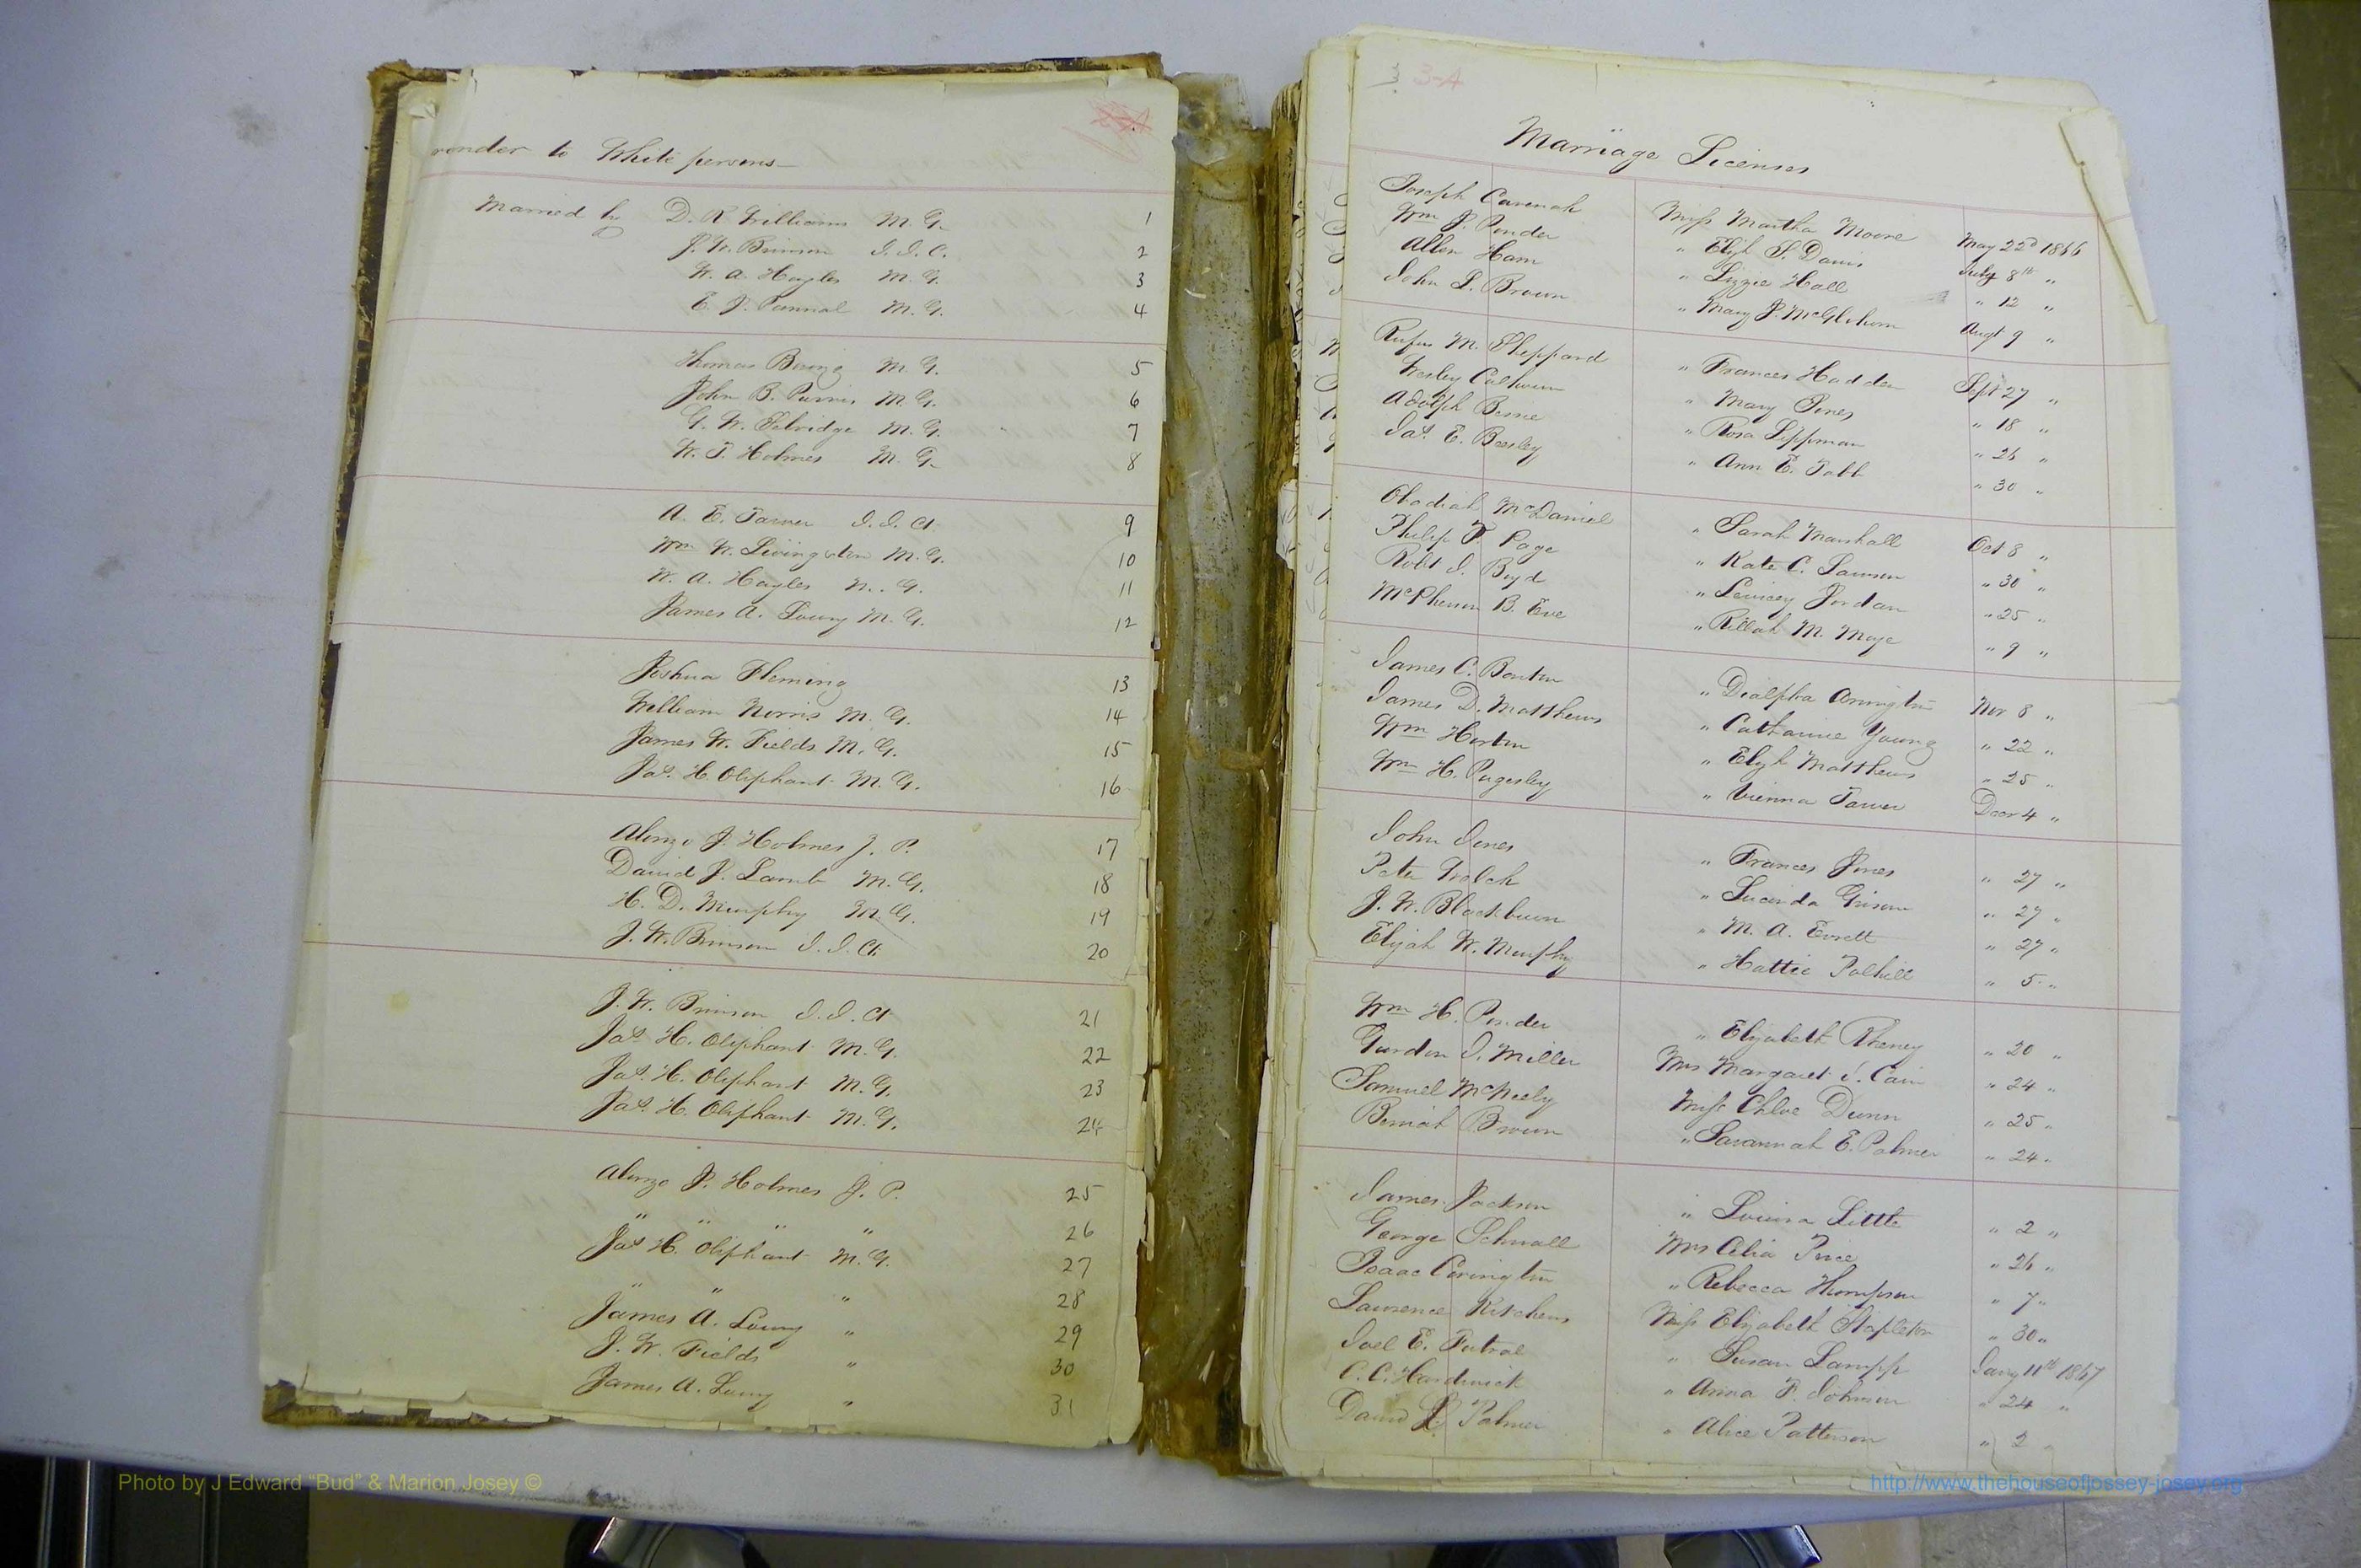 render to White persons
Married by D. R. Williams M. G. 1
J. W. Brinson J. I. C. 2
W. A. Hayles M. G. 3
E. J. Pannal M. G. 4
Thomas Boring M. G. 5
John B. Purvis M. G. 6
G. W. Selvidge M. G. 7
W. T. Holmes M. G. 8
A. E. Tarver J. I. Ct. 9
Wm W. Livingston M. G. 10
W. A. Hayles M. G. 11
James A. Lowry M. G. 12
Joshua Fleming 13
William Norris M. G. 14
James W. Fields M. G. 15
Jas. H. Oliphant M. G. 16
Alonzo J. Holmes J. P. 17
David J. Lamb M. G. 18
H. D. Murphy M. G. 19
J. W. Brinson J. I. Ct. 20
J. W. Brinson J. I. Ct 21
Jas. H. Oliphant M. G. 22
Jas. H. Oliphant M. G. 23
Jas. H. Oliphant M. G. 24
Alonzo J. Holmes J. P. 25
" " " " 26
Jas H. Oliphant M. G. 27
" " " 28
James A. Lowry " 29
J. W. Fields " 30
James A. Lowry " 31
3-A
Marriage Licenses
Joseph Cavenah Miss Martha Moore May 22d 1866
Wm J. Ponder " Elizh S. Davis July 8th "
Allen Ham " Lizzie Hall " 12 "
John L. Brown " Mary J. McGlohorn Augt 9 "
Rufus M. Sheppard " Frances Hadden Sept 27 "
Wesley Calhoun " Mary Jones " 18 "
Adolph Berne " Rosa Lippman " 26 "
Jas. E. Beasley " Ann E. Tabb " 30 "
Obadiah McDaniel " Sarah Marshall Oct 8 "
Philip T. Page " Kate C. Lawson " 30 "
Robt J. Boyd " Jordan " 25 "
McPherson B. Eve " Rillah M. Moye " 9 "
James C. Bouton " Arrington Nov 8 "
James D. Matthews " Catharine Young " 22 "
Wm Horton " Elizh Matthews " 25 "
Wm H. Pugesley " Vienna Tarver Decr 4 "
John Jones " Frances Jones " 27 "
Pete Welch " Lucinda " 27 "
J. W. Blackburn " M. A. Everett " 27 "
Elijah W. Murphy " Hattie Polhill " 5 "
Wm H. Ponder " Elizabeth Rheney " 20 "
Gurdon J. Miller Mrs Margaret J. Cain " 24 "
Samuel McNeely Miss Chloe Dunn " 25 "
Beniah Brown " Savannah E. Palmer " 24 "
James Jackson " Louisa Little " 2 "
George Schwall Mrs Celia Price " 26 "
Isaac Covington " Rebecca Thompson " 7 "
Lawrence Kitchens Miss Elizabeth Stapleton " 30 "
Joel E. Futral " Susan Lampp Jany 11th 1867
C. C. Hardwick " Anna P. Johnson " 24 "
David L. Palmer " Alice Patterson " 2 "
Photo by J Edward "Bud" & Marion Josey ©
http://www.thehouseofjossey-josey.org